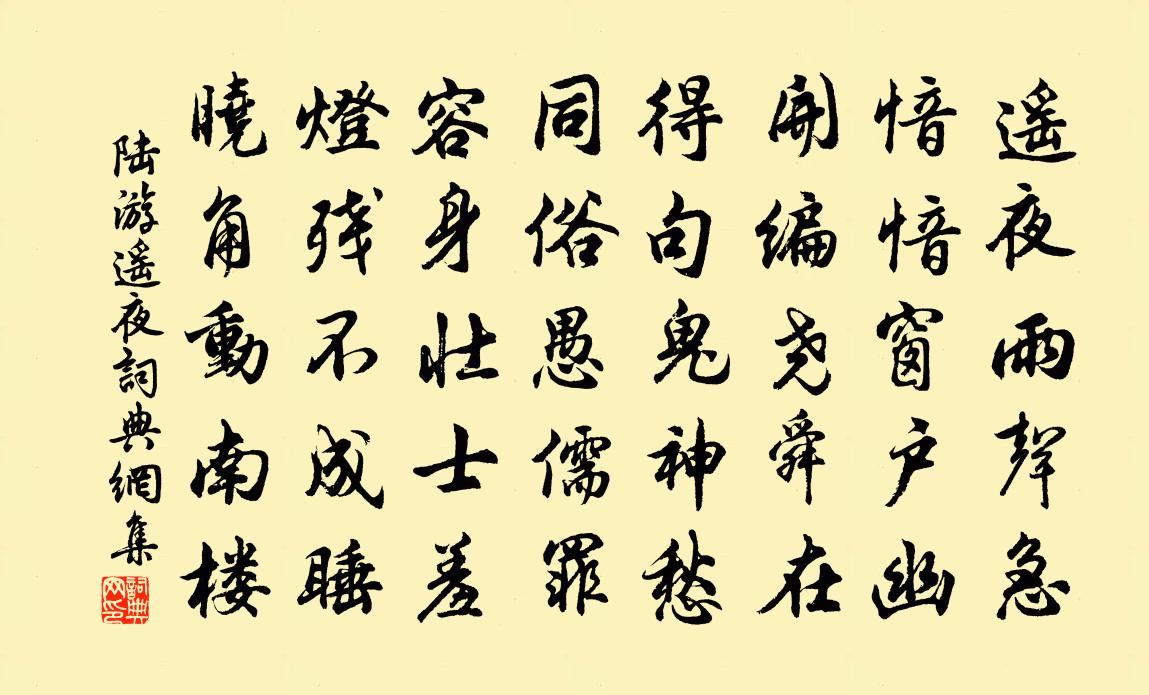 遥夜雨聲急
愔愔窗户幽
開編尧舜在
得句鬼神愁
同俗愚儒罪
容身壮士羞
燈残不成睡
曉角動南楼
陆游遥夜詞典網集
詞典网印